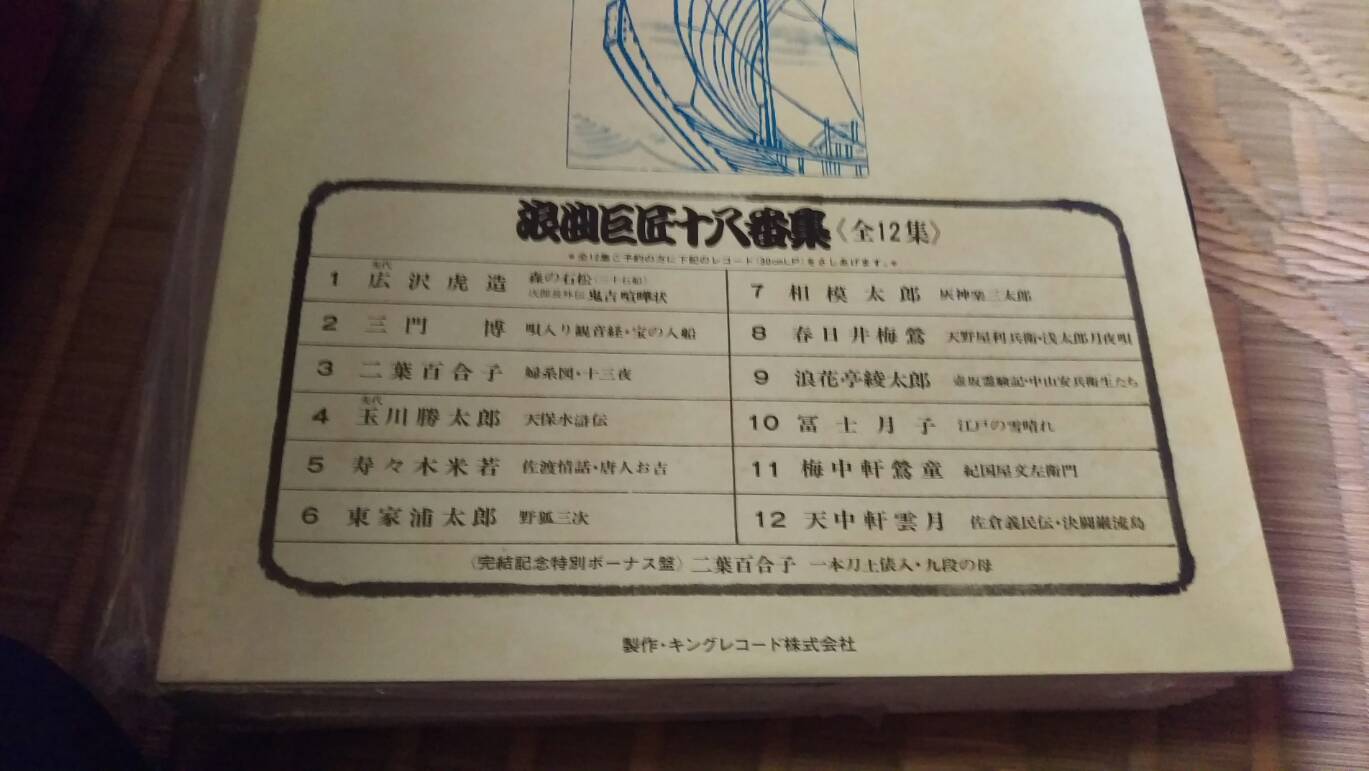 浪曲巨匠十八番集〈全12集〉
*全12集ご予約の方に下記のレコード(30cmLP)をさしあげます。*
1 先代 広沢虎造 森の石松(三十石船)
次郎長外伝 鬼吉喧嘩状
2 三門 博 唄入り観音経・宝の入船
3 二葉百合子 婦系図・十三夜
4 先代 玉川勝太郎 天保水滸伝
5 寿々木米若 佐渡情話・唐人お吉
6 東家浦太郎 野狐三次
7 相模太郎 灰神楽三太郎
8 春日井梅鶯 天野屋利兵衛・浅太郎月夜唄
9 浪花亭綾太郎 壺坂霊験記・中山安兵衛生たち
10 冨士月子 江戸の雪晴れ
11 梅中軒鶯童 紀国屋文左衛門
12 天中軒雲月 佐倉義民伝・決闘巌流島
〈完結記念特別ボーナス盤〉二葉百合子 一本刀土俵入・九段の母
製作・キングレコード株式会社